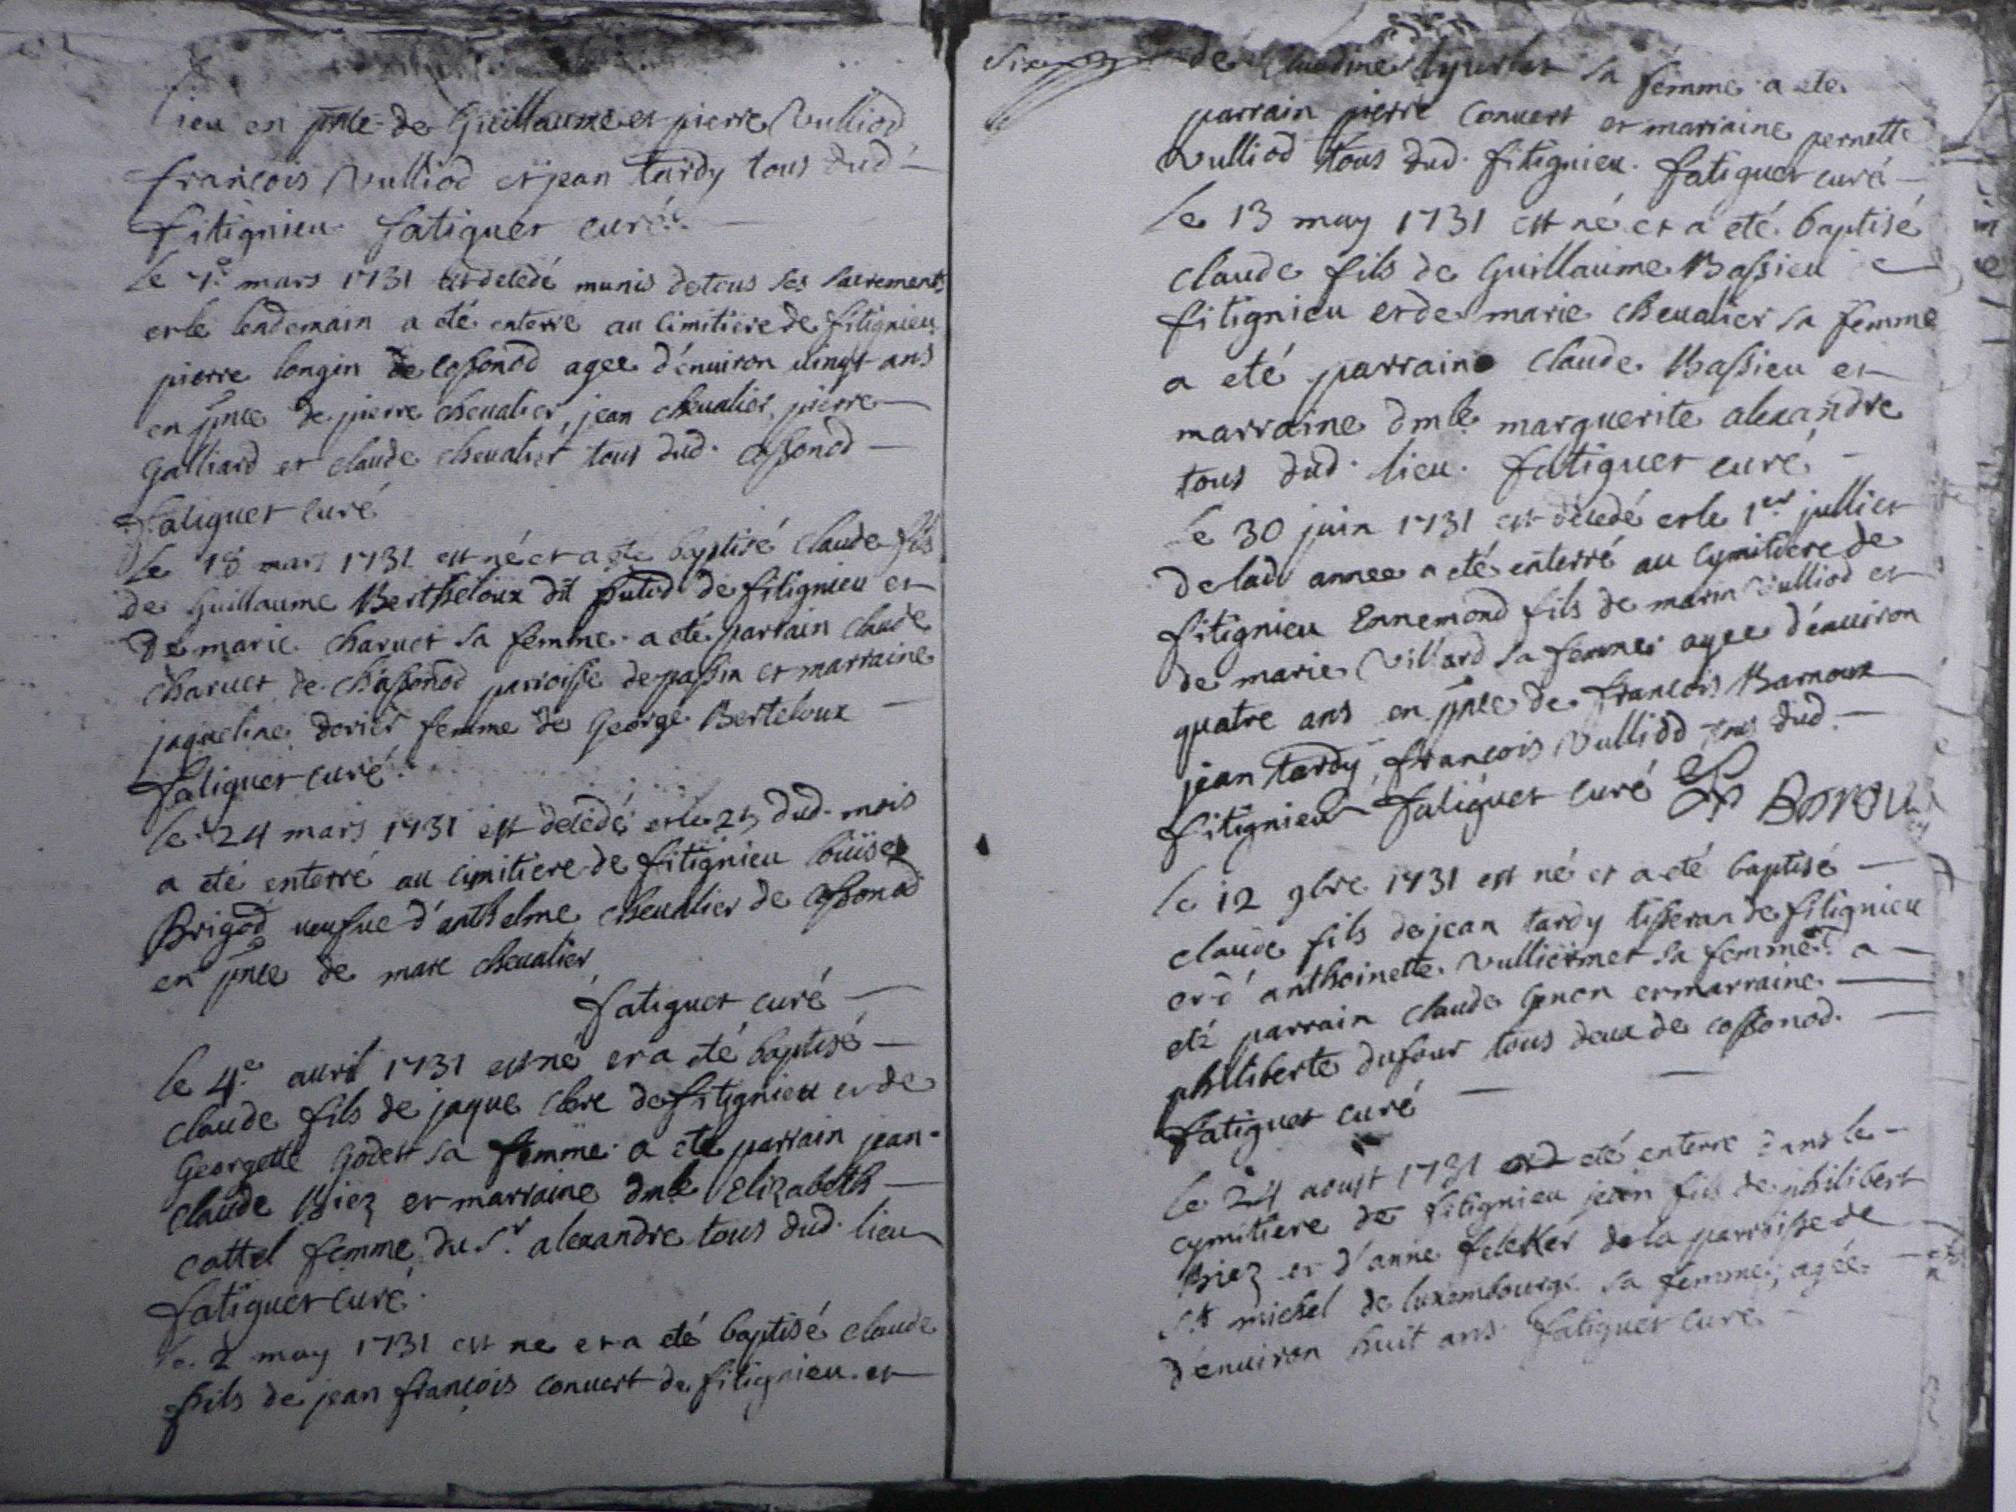 lieu en pnce de Guillaume et pierre Vulliod
françois Vulliod et jean tardy tous dud
fitignieu fatiguet curé
le 7e mars 1731 est decedé munis de tous ses sacrements
et le lendemain a eté enterre au cimitiere de fitignieu
pierre longin de cossonod agee d'enuiron uingt ans
en pnce de pierre cheualier, jean cheualier, pierre
Galliard et claude cheualier tous dud. cossonod
fatiguet curé
le 18 mars 1731 est né et a eté baptisé claude fils
de Guillaume Bertheloux dit putod de fitignieu et
de marie charuet sa femme. a eté parrain claude
charuet de chassonod parroisse de passin et marraine
jaqueline derier femme de George Berteloux
fatiguet curé.
le 24 mars 1731 est decedé et le 25 dud. mois
a eté enterré au cimitiere de fitignieu loüise
Brigod ueufue d'anthelme cheualier de cossonod
en pnce de marc cheualier
fatiguet curé
le 4e auril 1731 est né et a eté baptisé
claude fils de jaque clere de fitignieu et de
Georgette Godet sa femme. a eté parrain jean
claude Biez et marraine dmle Elizabeth
cattel femme du Sr. alexandre tous dud. lieu
fatiguet curé.
le 2 may 1731 est ne et a eté baptisé claude
fils de jean françois conuert de fitignieu. et
de claudine sa femme a ete
parrain pierre conuert et marraine pernette
Vulliod tous dud. fitignieu. fatiguet curé
le 13 may 1731 est né et a eté baptisé
claude fils de Guillaume Bassieu
fitignieu et de marie cheualier sa femme
a eté parrain claude Bassieu et
marraine dmle marguerite alexandre
tous dud. lieu. fatiguet curé
le 30 juin 1731 est decedé et le 1er jullict
de lad annee a eté enterré au cymitiere de
fitignieu Ennemond fils de marin Vulliod et
de marie Villard sa femme agee d'enuiron
quatre ans en pnce de françois Barnoux
jean tardy, françois Vulliod tous dud.
fitignieu fatiguet curé
le 12 9bre 1731 est né et a eté baptisé
claude fils de jean tardy tisseran de fitignieu
et d'anthoinette Vulliermet sa femme. a
eté parrain claude Genen et marraine
philiberte dufour tous deux de cossonod.
fatiguet curé
le 24 aoust 1731 eté enterre dans le
cymitiere de fitignieu jean fils de philibert
Biez et d'anne felcker de la parroisse de
St michel de luxembourg sa femme, agée
d'enuiron huit ans fatiguet curé